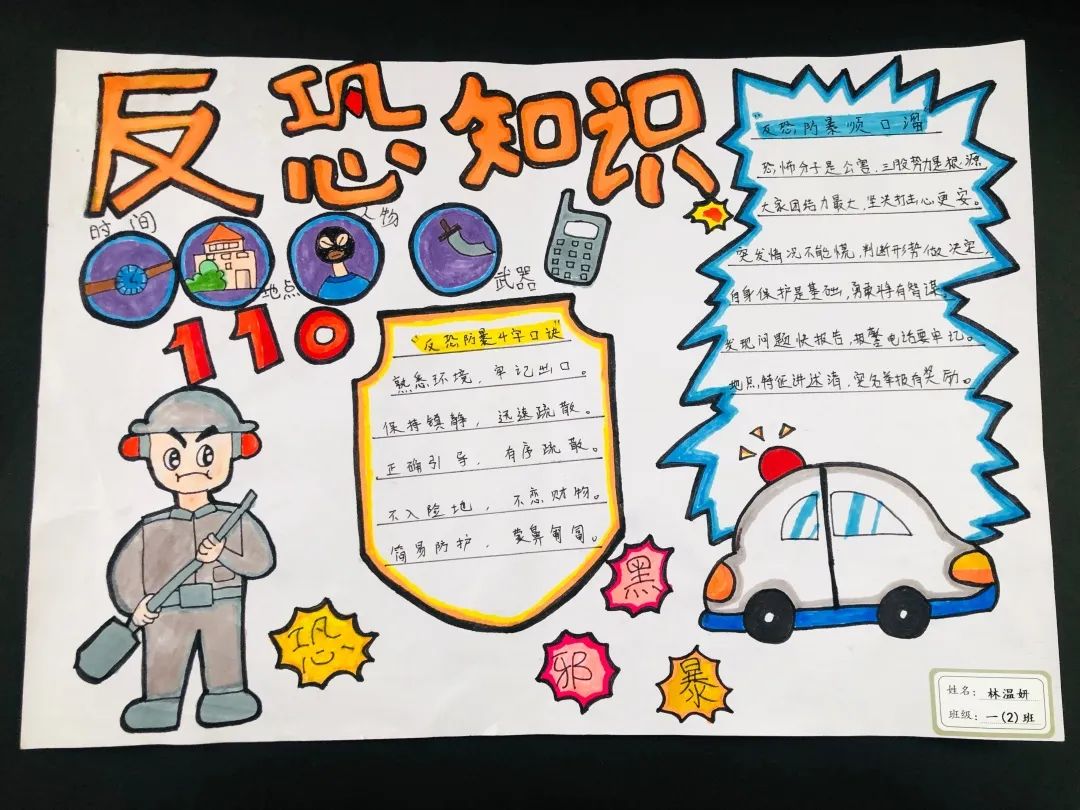 反恐知识
时间
地点
人物
武器
110
"反恐防暴4字口诀"
熟悉环境，牢记出口。
保持镇静，迅速疏散。
正确引导，有序疏散。
不入险地，不恋财物。
简易防护，蒙鼻匍匐。
"反恐防暴顺口溜
恐怖分子是公害，三股势力是根源
大家团结力最大，坚决打击心更安。
突发情况不能慌，判断形势做决定，
自身保护是基础，勇敢将有智谋。
发现问题快报告，报警电话要牢记。
地点，特征讲述清，实名举报有奖励。
恐
黑
邪
暴
姓名：林温妍
班级：一(2)班